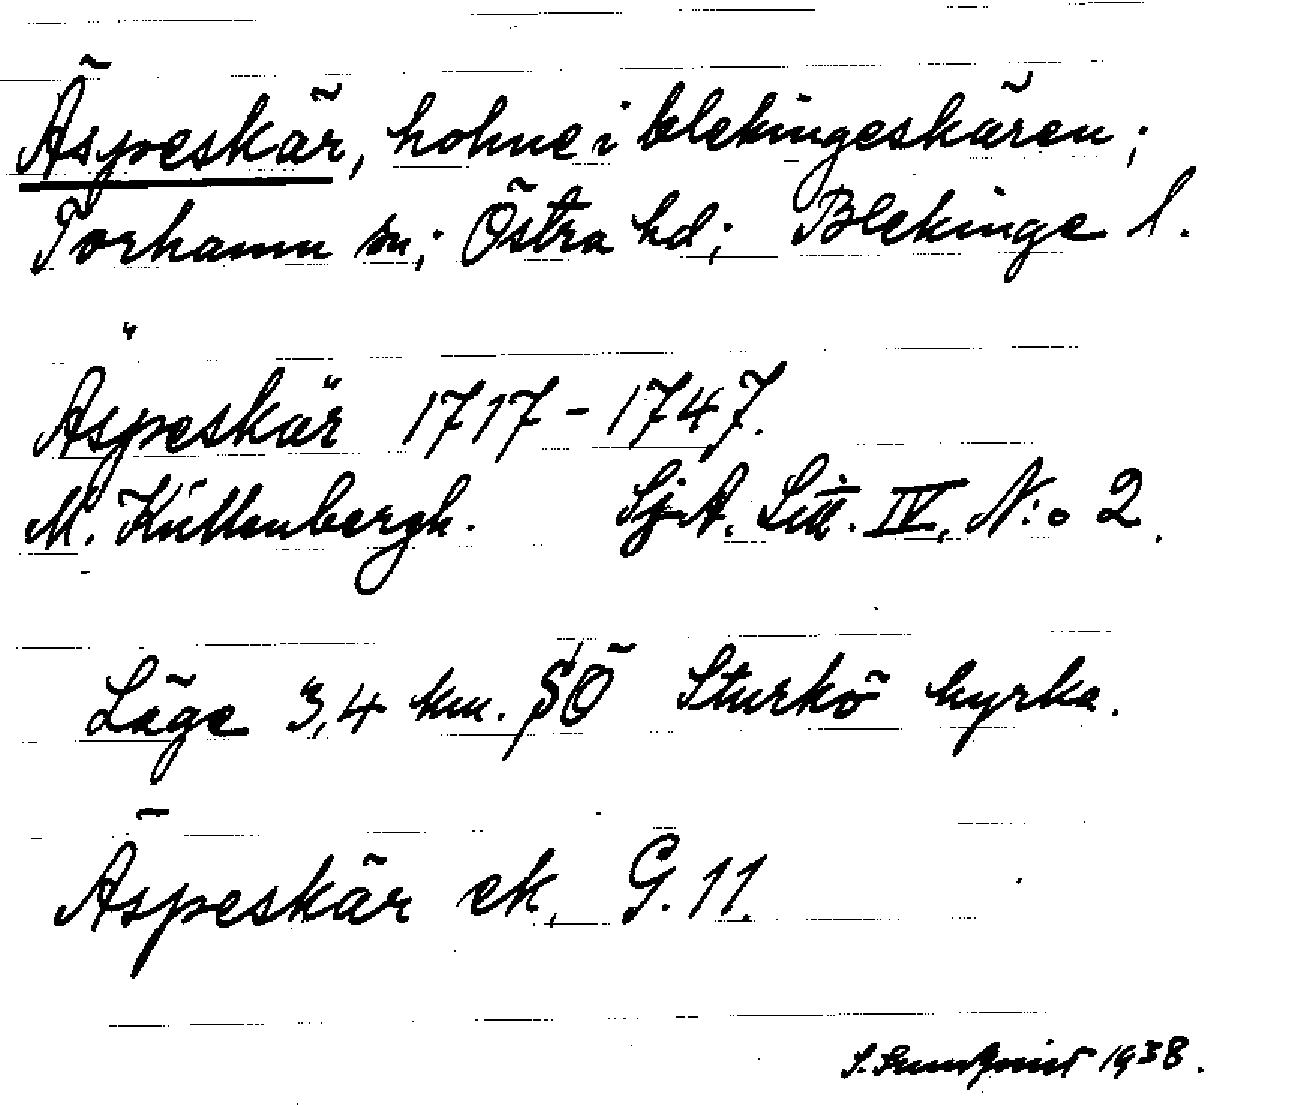 Äspeskär, holme i blekingeskären;
Torhamn sn; Östra hd; Blekinge l.
Äspeskär 1717-1747.
M. Küllenbergh. Sj.A. Litt. IV, N:o 2.
Läge 3,4 km. SÖ Sturkö kyrka.
Äspeskär ek. G. 11.
1938.